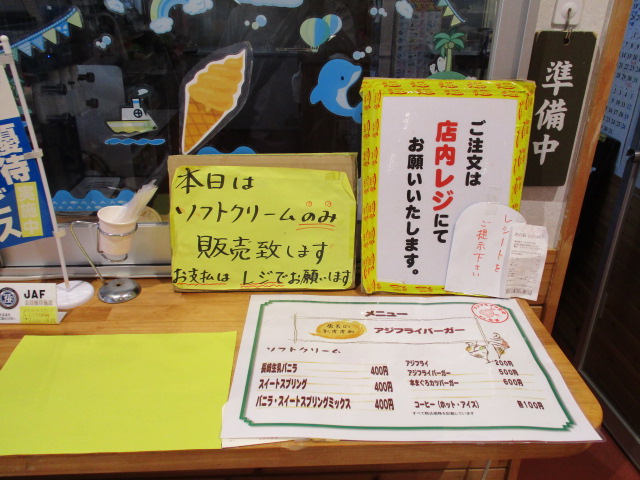 準備中
ご注文は
店内レジにて
お願いいたします。
レシートを
ご提示下さい
本日は
ソフトクリームのみ
販売致します
お支払は レジでお願います
優待
JAF
メニュー
店長の
おすすめ
アジフライバーガー
ソフトクリーム
長崎生乳バニラ 400円
スイートスプリング 400円
バニラ・スイートスプリングミックス 400円
アジフライ 200円
アジフライバーガー 500円
本まぐろカツバーガー 600円
コーヒー(ホット・アイス) 各100円
すべて税込価格を記載しています